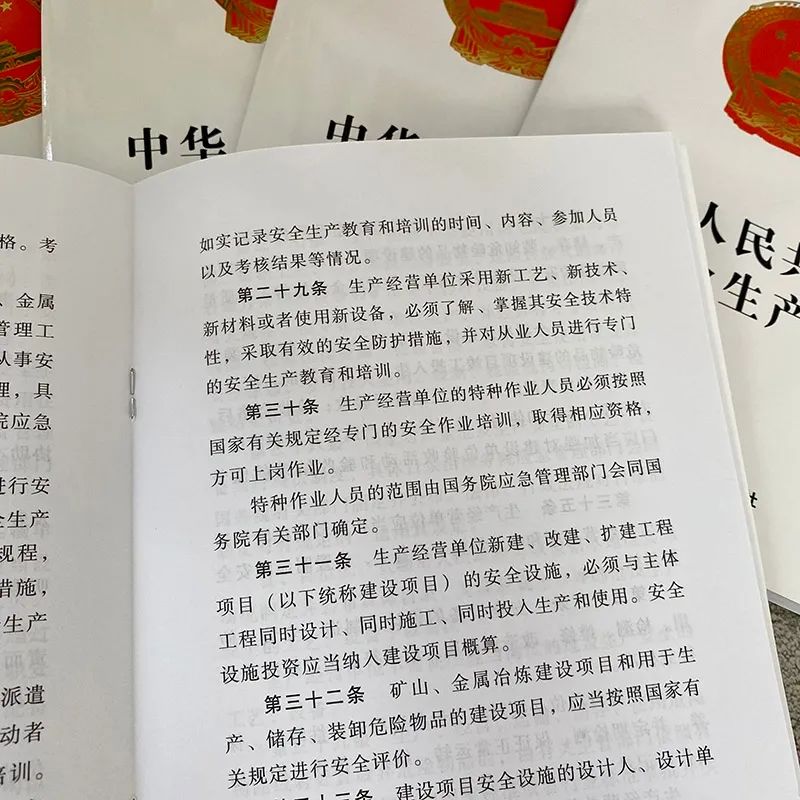 中华
中华
人民共
生产
格。考
、金属
管理工
从事安
理，具
院应急
进行安
全生产
规程，
措施，
生产
派遣
动者
培训。
如实记录安全生产教育和培训的时间、内容、参加人员
以及考核结果等情况。
第二十九条　生产经营单位采用新工艺、新技术、
新材料或者使用新设备，必须了解、掌握其安全技术特
性，采取有效的安全防护措施，并对从业人员进行专门
的安全生产教育和培训。
第三十条　生产经营单位的特种作业人员必须按照
国家有关规定经专门的安全作业培训，取得相应资格，
方可上岗作业。
特种作业人员的范围由国务院应急管理部门会同国
务院有关部门确定。
第三十一条　生产经营单位新建、改建、扩建工程
项目（以下统称建设项目）的安全设施，必须与主体
工程同时设计、同时施工、同时投入生产和使用。安全
设施投资应当纳入建设项目概算。
第三十二条　矿山、金属冶炼建设项目和用于生
产、储存、装卸危险物品的建设项目，应当按照国家有
关规定进行安全评价。
第三十三条　建设项目安全设施的设计人、设计单